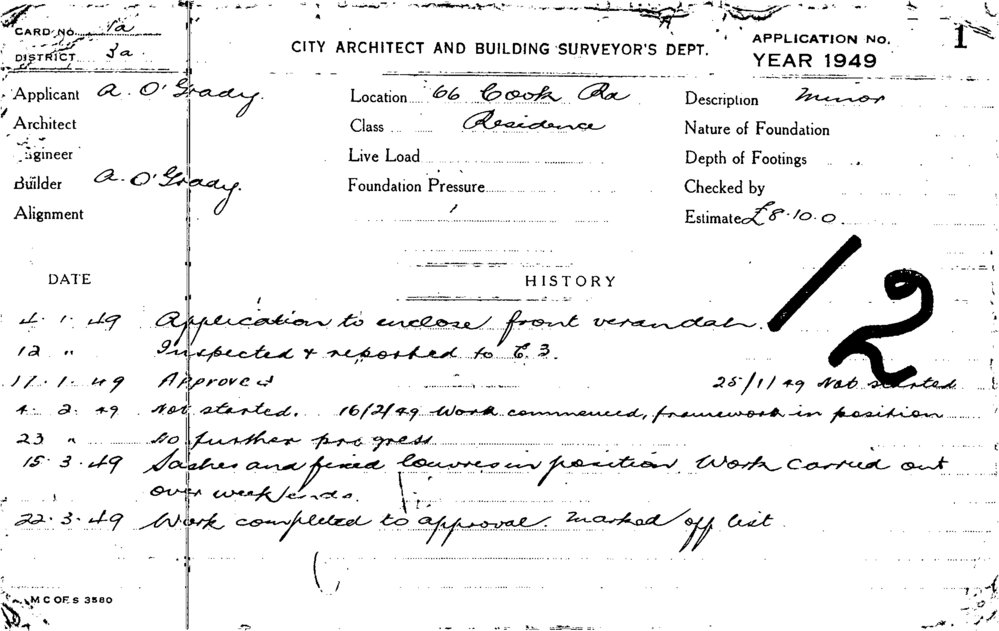 CARD No. 1a
DISTRICT 3a
CITY ARCHITECT AND BUILDING SURVEYOR'S DEPT.
APPLICATION No. 1
YEAR 1949
Applicant A. O'Grady.
Location 66 Cook Rd
Description Minor
Architect
Class Residence
Nature of Foundation
Engineer
Live Load
Depth of Footings
Builder A. O'Grady.
Foundation Pressure
Checked by
Alignment
Estimate £8.10.0
12
DATE HISTORY
4.1.49 Application to enclose front verandah.
12 " Inspected & reported to C.3.
17.1.49 Approved 25/1/49 Not started
4.2.49 Not started. 16/2/49 Work commenced, framework in position
23 " No further progress
15.3.49 Sashes and fixed louvres in position. Work carried out
over week/ends.
22.3.49 Work completed to approval. Marked off list
M C OF. S 3580